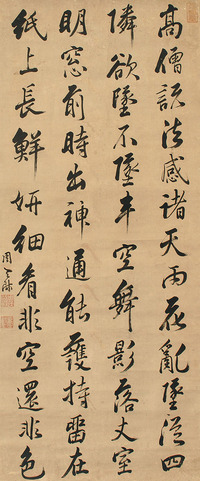 高僧説法感諸天雨花亂墜從四
隣欲墜不墜半空舞影落丈室
明窓前時出神通能護持留在
紙上長鮮妍細看非空還非色
周